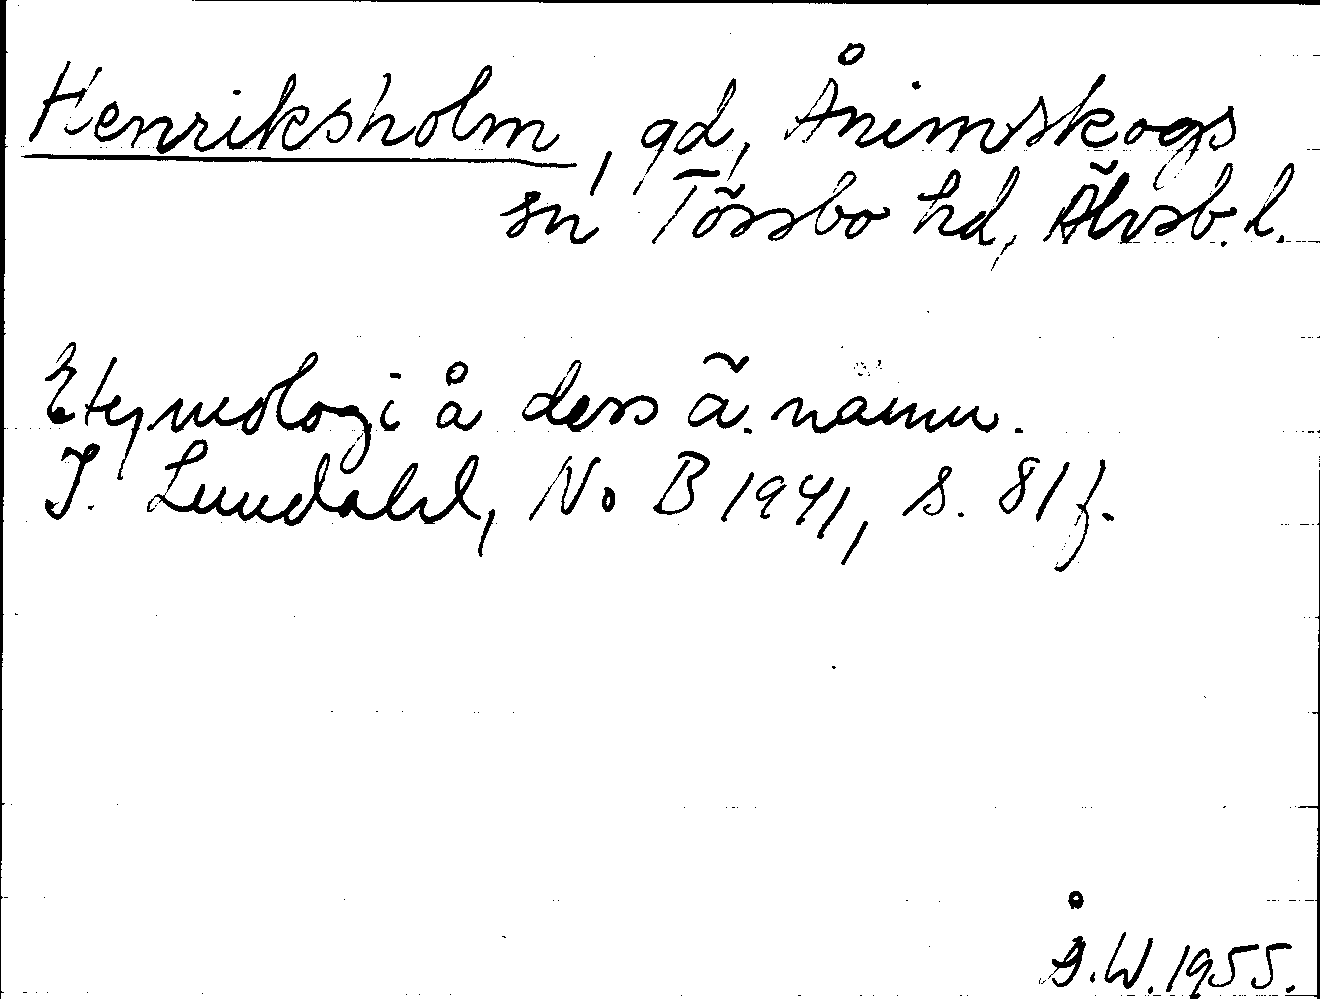 Henriksholm, gd, Ånimskogs
sn Tössbo hd, Älvsb. l.
Etymologi å dess ä. namn.
I. Lundahl, NoB 1941, s. 81 f.
Å.W. 1955.